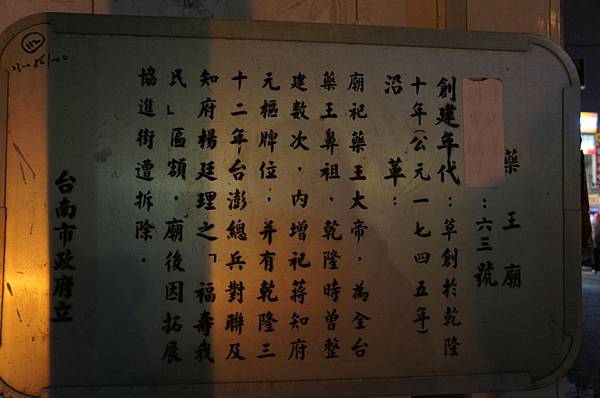 藥王廟
：六三號
創建年代：草創於乾隆
十年(公元一七四五年)
沿革：
廟祀藥王大帝，為全台
藥王鼻祖，乾隆時曾整
建數次，內增祀蔣知府
元樞牌位，并有乾隆三
十二年台澎總兵對聯及
知府楊廷理之「福壽我
民」匾額，廟後因拓展
協進街遭拆除．
台南市政府立
112